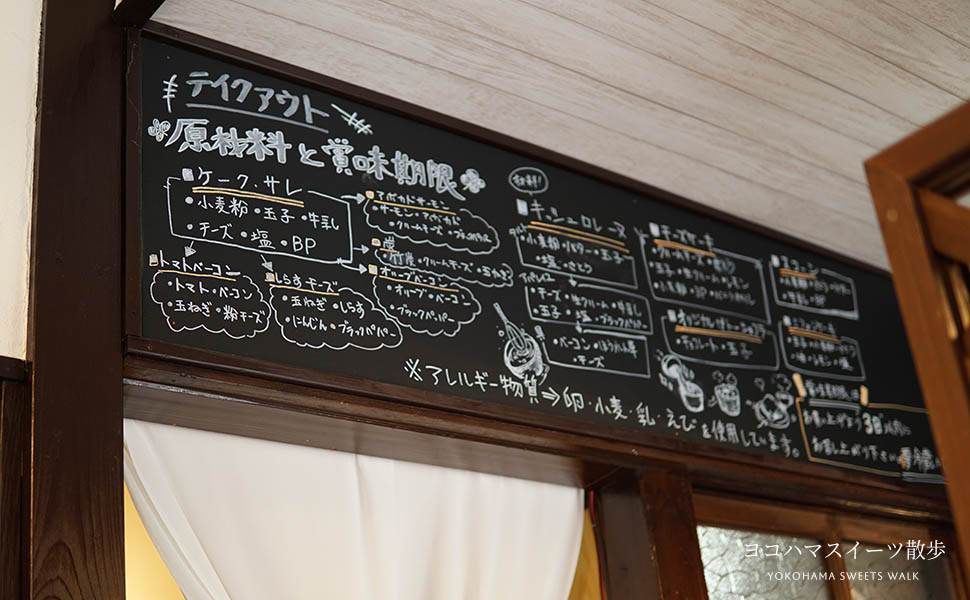 テイクアウト
原材料と賞味期限
ケーク・サレ
・小麦粉・玉子・牛乳
・チーズ・塩・BP
トマトベーコン
・トマト・ベーコン
・玉ねぎ・粉チーズ
しらすチーズ
・玉ねぎ・しらす
・にんじん・ブラックペパー
アボカドサーモン
・サーモン・アボカド
・クリームチーズ
・クリームチーズ・玉ねぎ
オリーブベーコン
・オリーブ・ベーコン
・ブラックペパー
キッシュロレーヌ
・小麦粉・バター・玉子
・塩・さとう
アパレイユ
・チーズ・生クリーム・牛乳
・玉子・塩・ブラックペパー
・ベーコン・ほうれん草
・チーズ
チーズケーキ
・クリームチーズ
・玉子・生クリーム・レモン
・小麦粉・BP
・玉子
スコーン
・小麦粉・バター
・牛乳・BP
※アレルギー物質⇒卵・小麦・乳・えびを使用しています。
お買い上げより3日以内に
お召し上がり下さい。
ヨコハマスイーツ散歩
YOKOHAMA SWEETS WALK